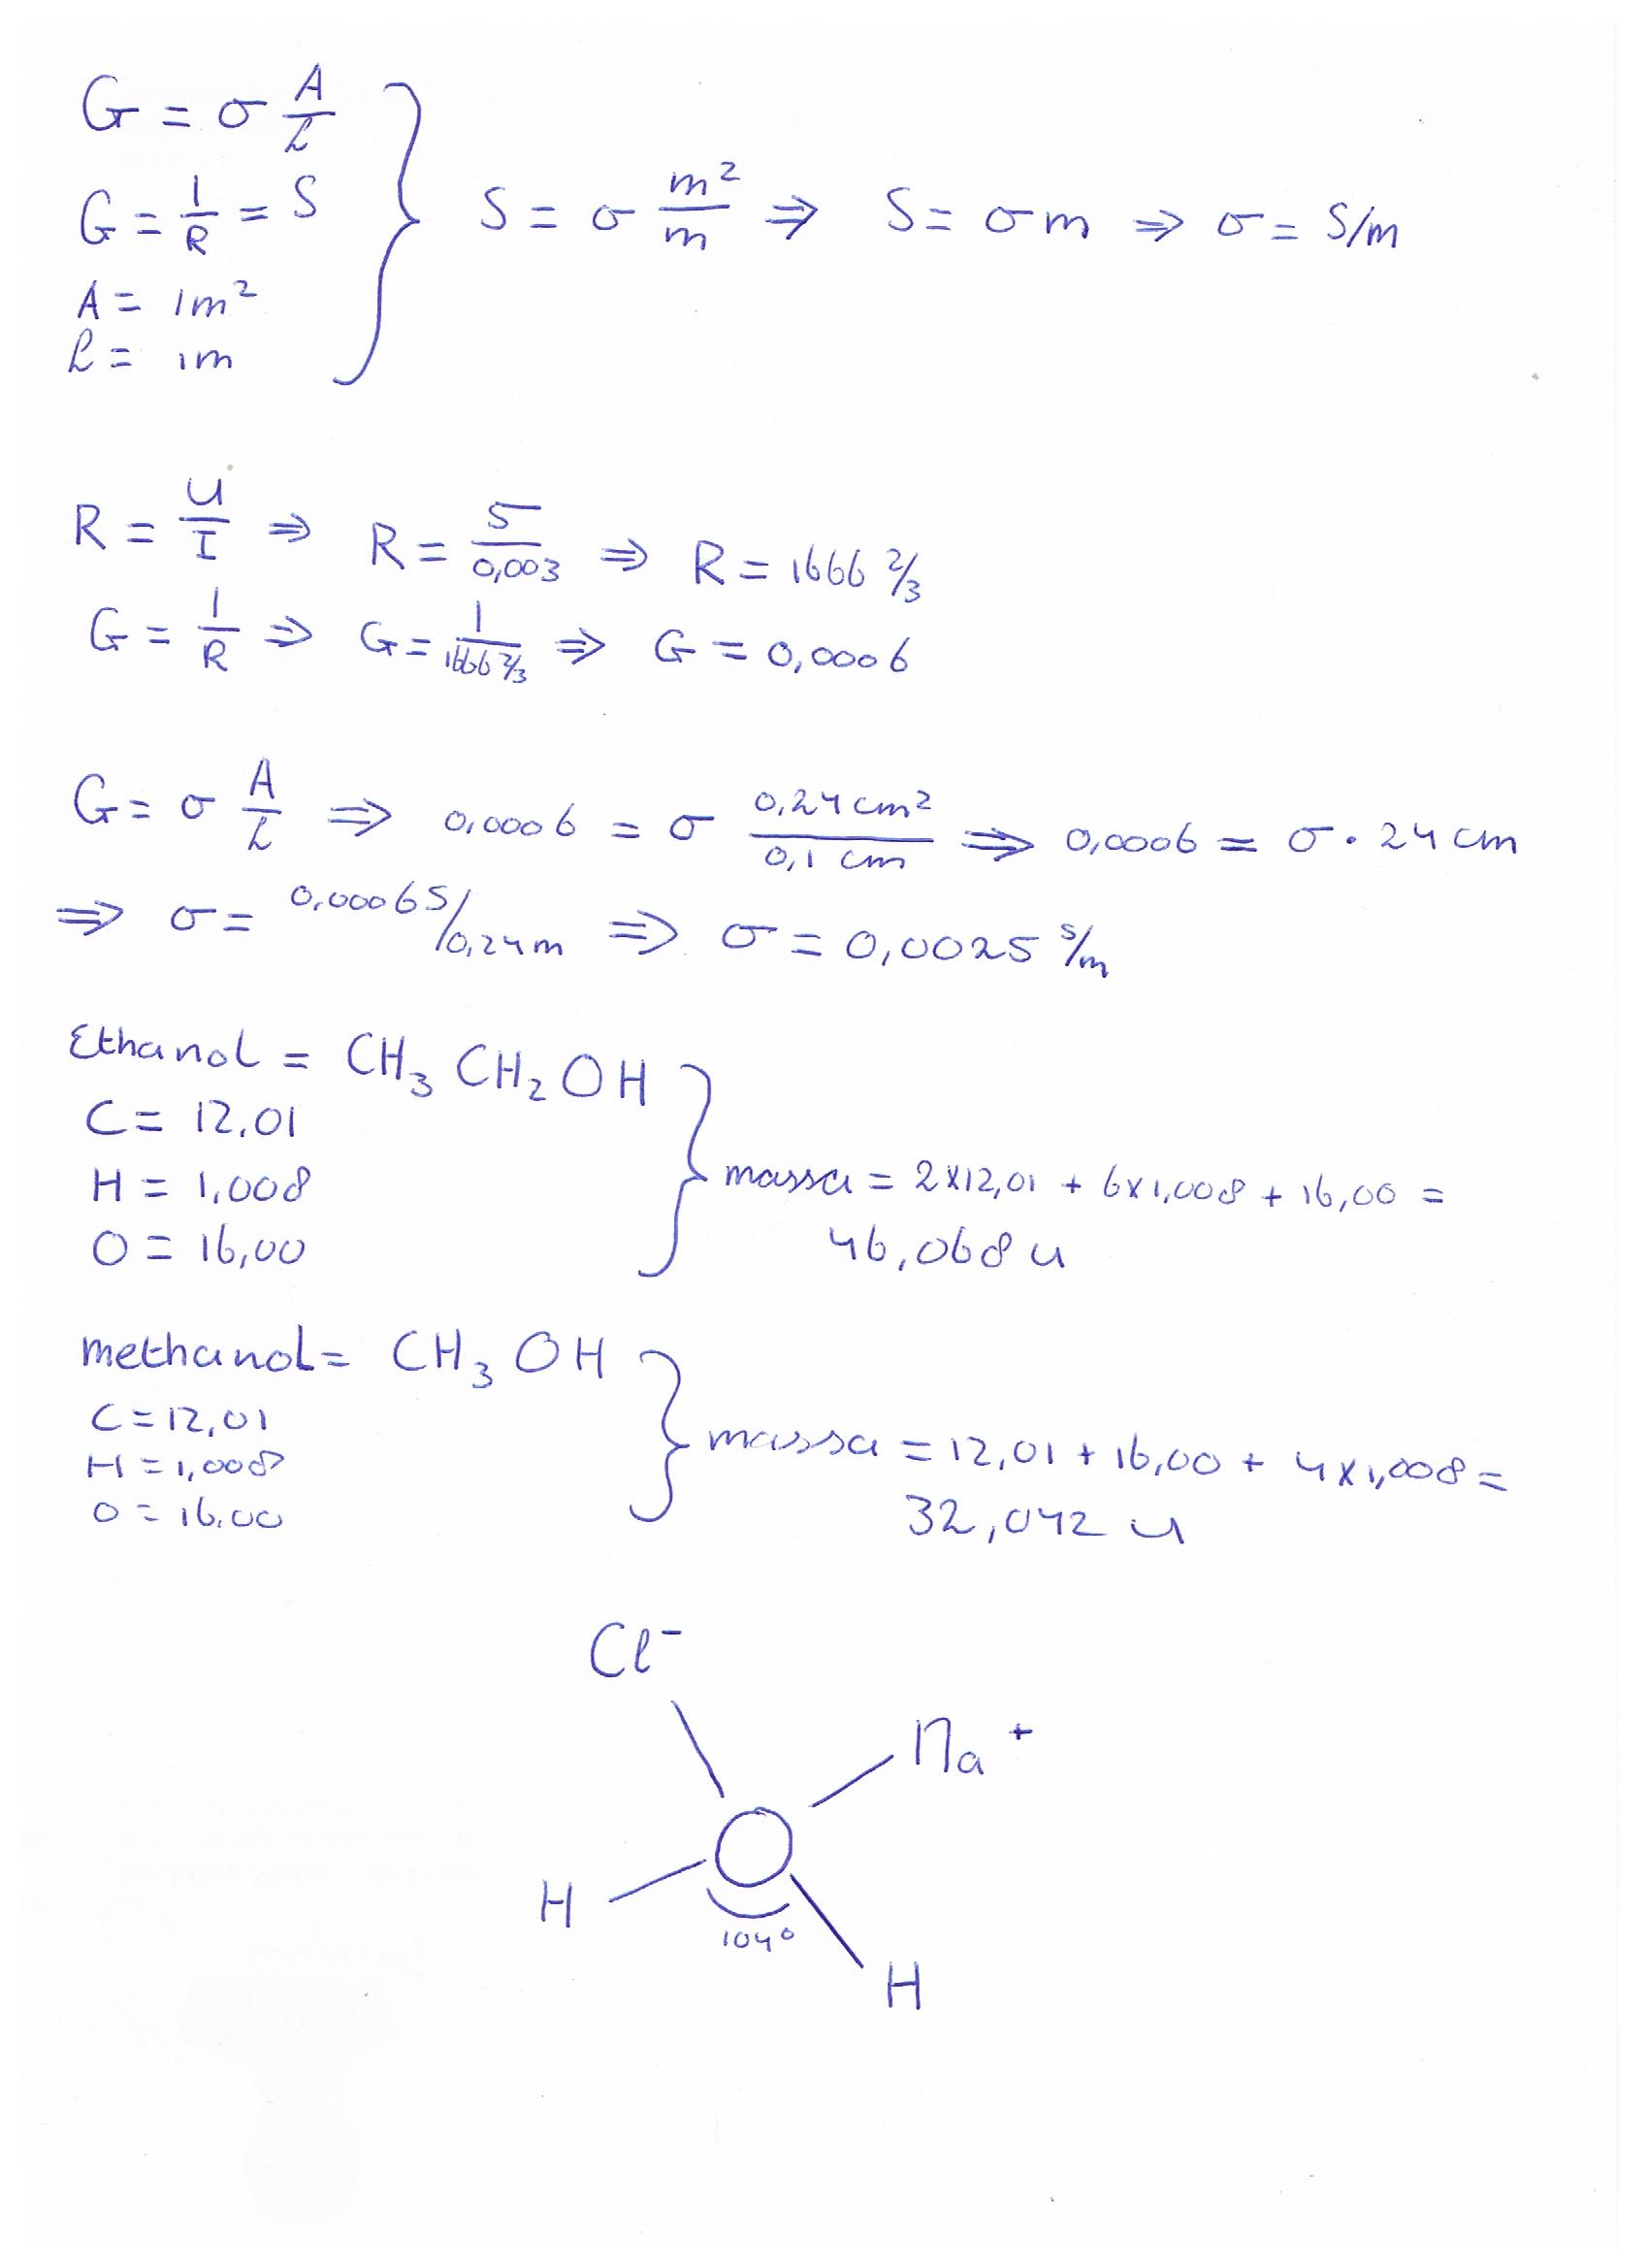 G = σ A/ℓ
G = 1/R = S
A = 1m²
ℓ = 1m
S = σ m²/m ⇒ S = σ m ⇒ σ = S/m
R = U/I ⇒ R = 5/0,003 ⇒ R = 1666 ⅔
G = 1/R ⇒ G = 1/1666 ⅔ ⇒ G = 0,0006
G = σ A/ℓ ⇒ 0,0006 = σ 0,24 cm²/0,1 cm ⇒ 0,0006 = σ · 24 cm
⇒ σ = 0,0006 S/0,24 m ⇒ σ = 0,0025 S/m
Ethanol = CH₃ CH₂ OH
C = 12,01
H = 1,008
O = 16,00
massa = 2x12,01 + 6x1,008 + 16,00 =
46,068 u
methanol = CH₃ OH
C = 12,01
H = 1,008
O = 16,00
massa = 12,01 + 16,00 + 4x1,008 =
32,042 u
Cl⁻
Na⁺
H
104°
H